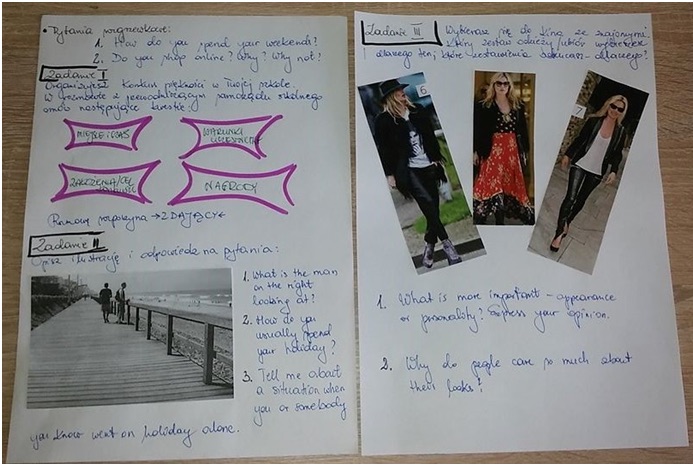 • Pytania rozgrzewkowe:
1. How do you spend your weekends?
2. Do you shop online? Why? Why not?
Zadanie I
Organizujesz konkurs piękności w Twojej szkole.
W rozmowie z przewodniczącym samorządu szkolnego
omów następujące kwestie:
MIEJSCE I CZAS
WARUNKI UCZESTNICTWA
ZAŁOŻENIA/CEL
NAGRODY
Rozmowę rozpoczyna → ZDAJĄCY ←
Zadanie II
Opisz ilustrację i odpowiedz na pytania:
1. What is the man
on the right
looking at?
2. How do you
usually spend
your holiday?
3. Tell me about
a situation when
you or somebody
you know went on holiday alone.
Zadanie III
Wybierasz się do kina ze znajomymi.
Który zestaw odzieży/ubiór wybierzesz
i dlaczego ten; które zestawienia odrzucasz – dlaczego?
6
7
1. What is more important – appearance
or personality? Express your opinion.
2. Why do people care so much about
their looks?